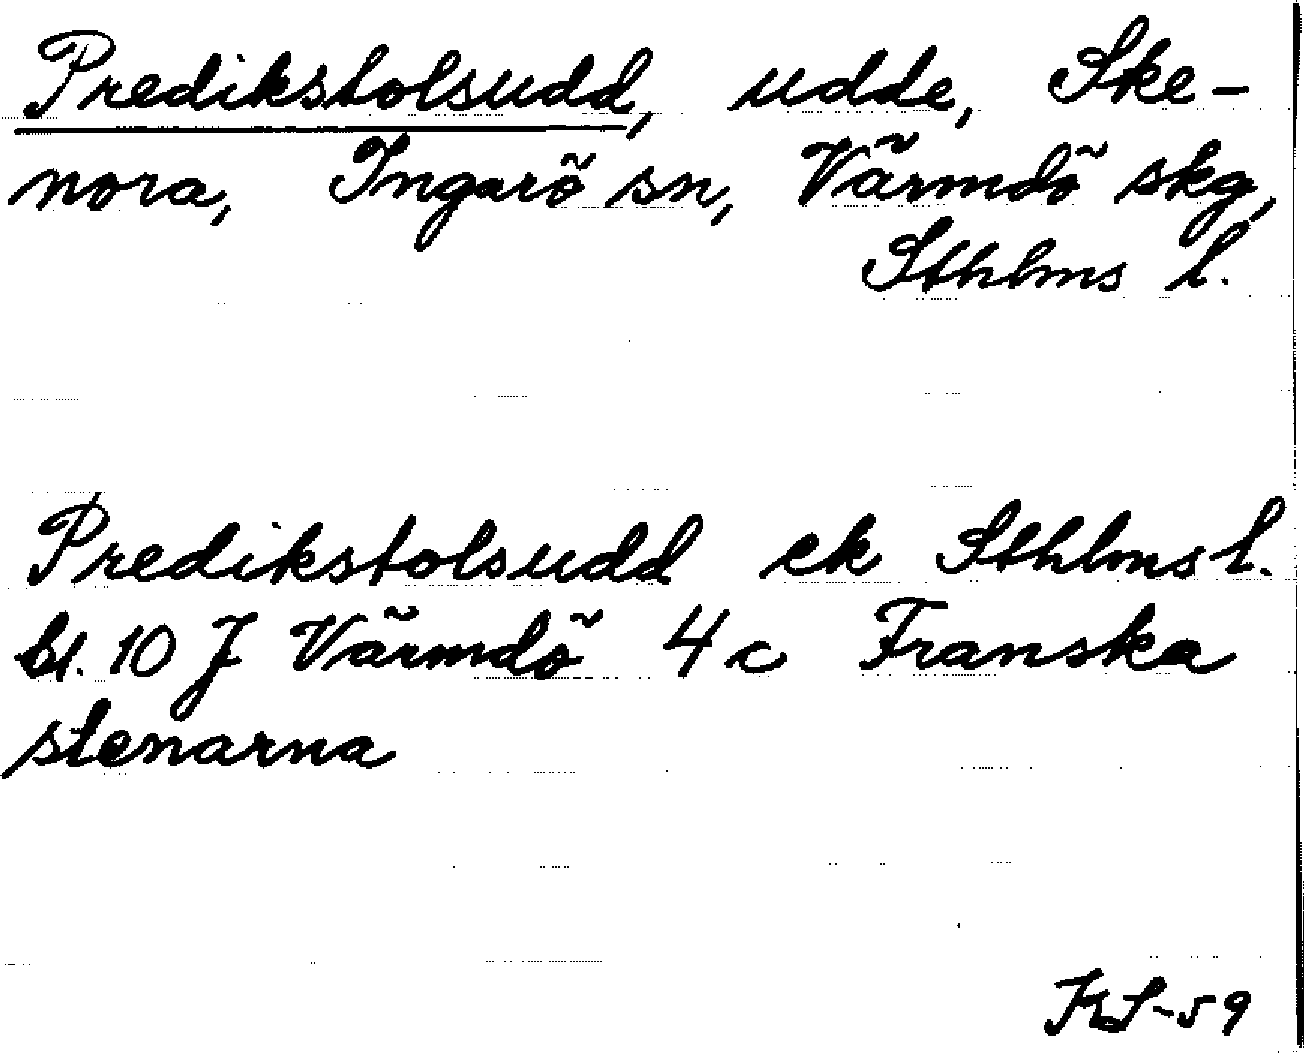 Predikstolsudd, udde, Ske-
nora, Ingarö sn, Värmdö skg,
Sthlms l.
Predikstolsudd ek Sthlms l.
bl. 10 J Värmdö 4 c Franska
stenarna
KS-59